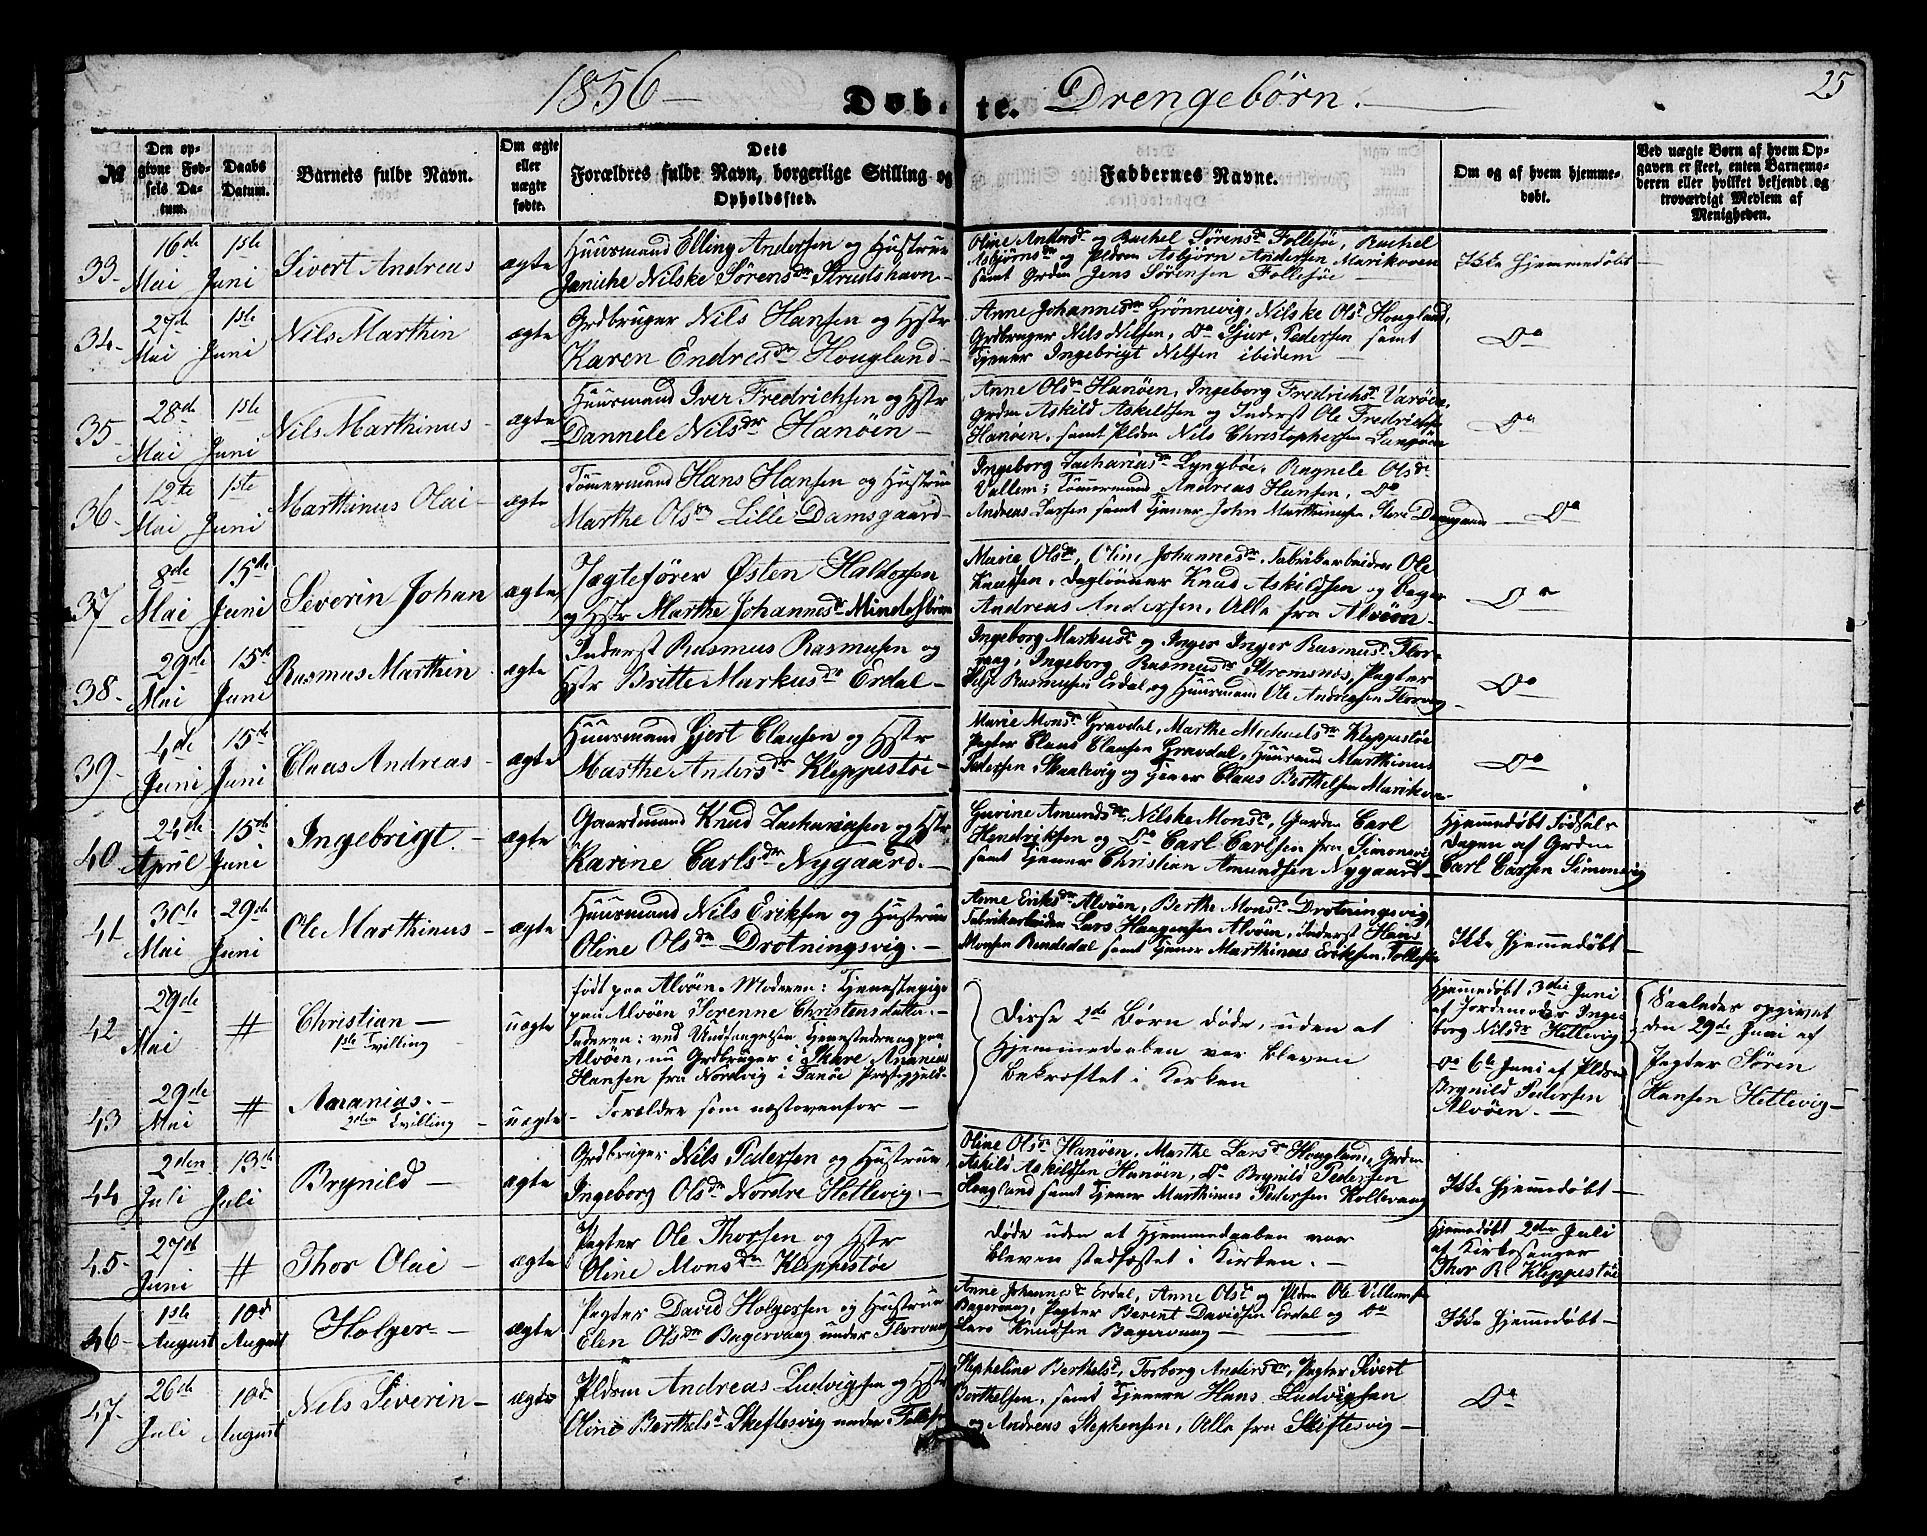 1856 — Døb- te. Drengebørn. — 25
№
Den op-
givne Fød-
sels Da-
tum.
Daabs
Datum.
Barnets fulde Navn.
Om ægte
eller
uægte
fødte.
Dets
Forældres fulde Navn, borgerlige Stilling og
Opholdssted.
Faddernes Navne.
Om og af hvem hjemme-
døbt.
Ved uægte Børn af hvem Op-
gaven er skeet, enten Barnemo-
deren eller hvilket bekjendt og
troværdigt Medlem af
Menigheden.
33.
16de
Mai
1ste
Juni
Sivert Andreas
ægte
Huusmand Elling Andersen og Hustrue
Janiche Nilske Sørensdr Strudshavn
Oline Andersdr og Rachel Sørensdr Follesøe, Rachel
Asbjørnsdr og Pldsm Asbjørn Andersen Marikoven
samt Grdm Jens Sørensen Follesøe
Ikke Hjemmedøbt —
34.
27de
Mai
1ste
Juni
Nils Marthin
ægte
Grdbruger Nils Hansen og Hstr
Karen Endresdr Hougland
Anne Johannesdr Grønnevig, Nilske Olsd Hougland,
Grdbruger Nils Nilsen, Do Sjur Pedersen samt
Tjener Ingebrigt Nilsen ibidem —
Do
35.
28de
Mai
1ste
Juni
Nils Marthinus
ægte
Huusmand Iver Fredrichsen og Hstr
Dannele Nilsdr Hanøen
Anne Olsdr Hanøen, Ingeborg Fredrichsd Varøen,
Grdm Askild Askildsen og Inderst Ole Fredrichsen
Hanøen, samt Pldsm Nils Christophersen
Do
36.
12te
Mai
1ste
Juni
Marthinus Olai
ægte
Tømmermand Hans Hansen og Hustrue
Marthe Olsdr Lille Damsgaard
Ingeborg Zachariasdr Lyngbøe, Ragnele Olsdr
Vallem; Tømmermand Andreas Hansen, Do
Andreas Larsen samt Tjener John Marthinusen Store Damsgaard
Do
37
8de
Mai
15de
Juni
Severin Johan
ægte
Jægtefører Østen Haldorsen
og Hstr Marthe Johannesdr Mindesbroen
Marie Olsdr, Oline Johannesdr, Fabrikarbeider Ole
Knudsen, Daglønner Knud Askildsen og Bager
Andreas Andersen, Alle fra Alvøen
Do
38.
29de
Mai
15de
Juni
Rasmus Marthin
ægte
Inderst Rasmus Rasmusen og
Hstr Britte Markusdr Erdal
Ingeborg Markusdr og Inger Inger Rasmusdr Flor-
vaag, Ingeborg Rasmusdr Strømsnæs, Pagter
Silje Rasmusen Erdal og Huusmand Ole Andreasen Florvaag
Do
39.
4de
Juni
15de
Juni
Claus Andreas
ægte
Huusmand Gjert Clausen og Hstr
Marthe Andersdr Kleppestøe
Marie Monsdr Gravdal, Marthe Michaelsdr Kleppestøe
Pagter Claus Clausen Gravdal, Huusmd Marthinus
Pedersen, Skaalevig og Tjener Claus Berthelsen Marikoven
Do
40.
24de
April
15de
Juni
Ingebrigt.
ægte
Gaardmand Knud Zachariasen og Hstr
Karine Carlsdr Nygaard.
Gurine Amundsdr, Nilske Monsdr, Gardm Carl
Hendriksen og Do Carl Carlsen fra Simonsvig
samt Tjener Christian Amundsen Nygaard
Hjemmedøbt Fødsels-
dagen af Grdm
Carl Carlsen Simonsvig
41.
30te
Mai
29de
Juni
Ole Marthinus
ægte
Huusmand Nils Eriksen og Hustrue
Oline Olsdr Drotningsvig.
Anne Eriksdr Alvøen, Berthe Monsdr Drotningsvig
Fabrikarbeider Lars Haagensen Alvøen, Inderst Hans
Monsen Rendedal samt Tjener Marthinus Eriksen, Follesøe
Ikke Hjemmedøbt
42
29de
Mai
#
Christian
1ste Tvilling
uægte
født paa Alvøen. Moderen: Tjenestepige
paa Alvøen Serenne Christensdatter.
Faderen: ved Undfangelsen Tjenestedreng paa
Alvøen, nu Grdbruger i Skare Ananias
Hansen fra Nordvig i Fanøe Præstegjeld.
Disse 2de Børn døde, uden at
Hjemmedaaben var bleven
bekræftet i Kirken
Hjemmedøbt, 3die Juni
af Jordemoder Inge-
borg Nilsdr Hetlevig
Saaledes opgivet
den 29de Juni af
Pagter Søren
Hansen Hetlevig
43
29de
Mai
#
Ananias.
2den Tvilling
uægte
Forældre som næstovenfor
Do 6te Juni af Pldsm
Brynild Pedersen
Alvøen.
44
2den
Juli
13de
Juli
Brynild
ægte
Grdbruger Nils Pedersen og Hustrue
Ingeborg Olsdr Nordre Hetlevig.
Oline Olsdr Hanøen, Marthe Larsdr Hougland, Grdm
Askild Askildsen Hanøen, Do Brynild Pedersen
Hougland samt Tjener Marthinus Pedersen Kollevaag
Ikke Hjemmedøbt
45.
27de
Juni
#
Thor Olai
ægte
Pagter Ole Thorsen og Hstr
Oline Monsdr Kleppestøe
Døde uden at Hjemmedaaben var
bleven stadfæstet i Kirken.
Hjemmedøbt 2den Juli
af Kirkesanger
Thor R. Kleppestøe
46
1ste
August
10de
August
Holger
ægte
Pagter David Holgersen og Hustrue
Elen Olsdr Bagervaag under Florvaag
Anne Johannesdr Erdal, Anne Olsdr og Pldsm Ole Villumsen
Bagervaag, Pagter Berent Davidsen Erdal og Do
Lars Knudsen Bagervaag
Ikke Hjemmedøbt
47.
26de
Juli
10de
August
Nils Severin
ægte
Pldsm Andreas Ludvigsen og Hstr
Oline Berthelsd Skeflesvig under Follesøe
Stepheline Berthelsd, Torborg Andersdr, Pagter Sivert
Berthelsen, samt Tjenere Hans Ludvigsen
og Andreas Stephensen, Alle fra Skiftesvig
Do